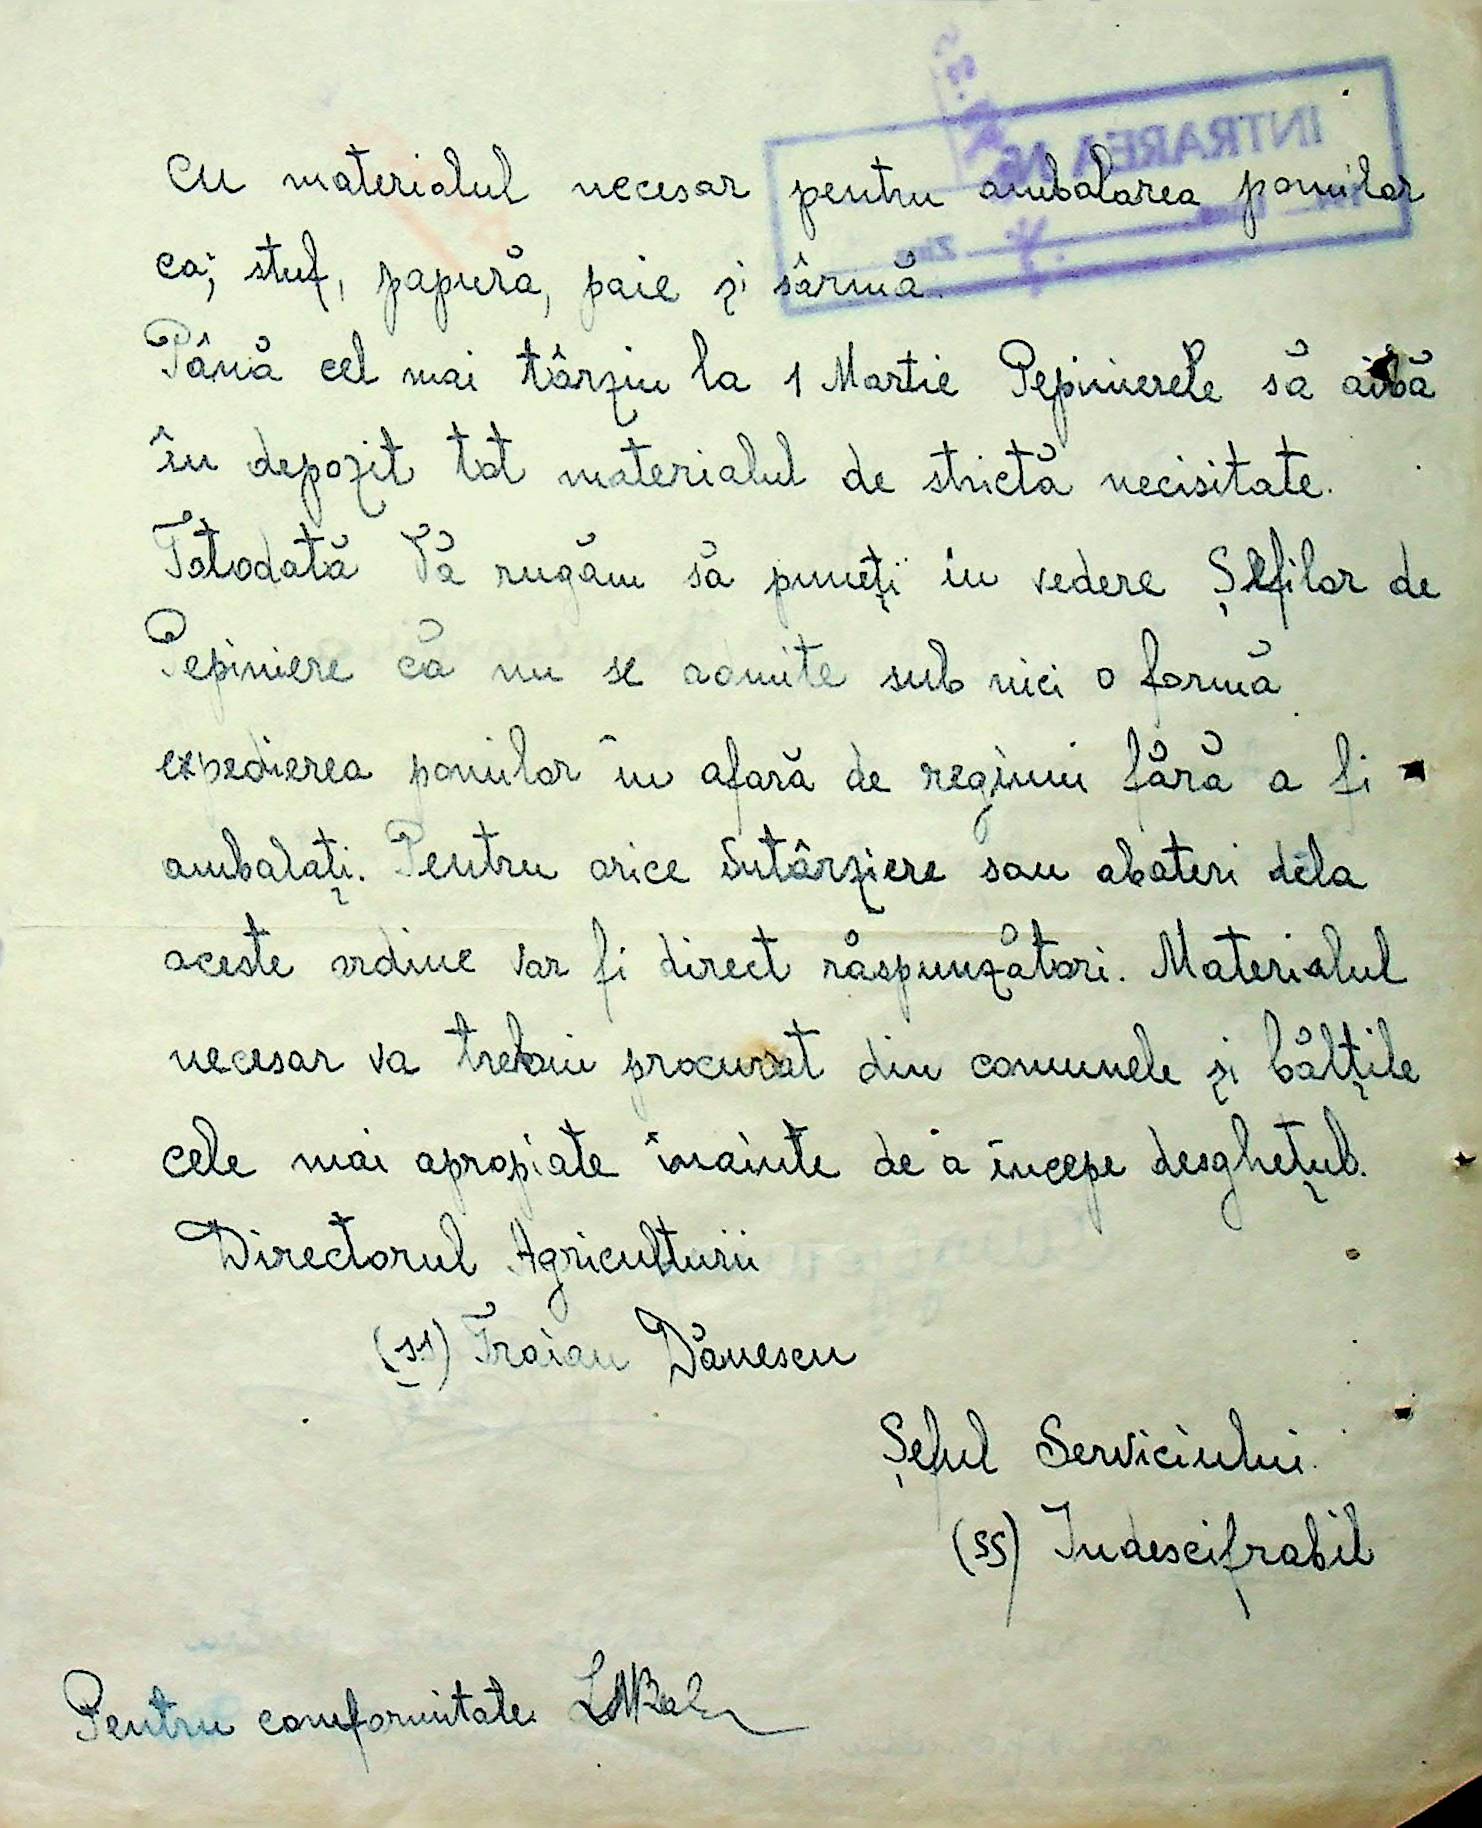 cu materialul necesar pentru ambalarea pomilor
ca; stuf, papură, paie și sârmă.
Până cel mai târziu la 1 Martie Pepinierele să aibă
în depozit tot materialul de strictă necisitate.
Totodată Vă rugăm să puneți in vedere Șefilor de
Pepiniere că nu se admite sub nici o formă
expedierea pomilor în afară de regiuni fără a fi
ambalați. Pentru orice întârziere sau abateri dela
aceste ordine vor fi direct răspunzători. Materialul
necesar va trebui procurat din comunele și bălțile
cele mai apropiate înainte de a începe desghețul.
Directorul Agriculturii
(ss) Traian Dănescu
Șeful Serviciului
(ss) Indescifrabil
Pentru comformitate
INTRAREA No
Ziua